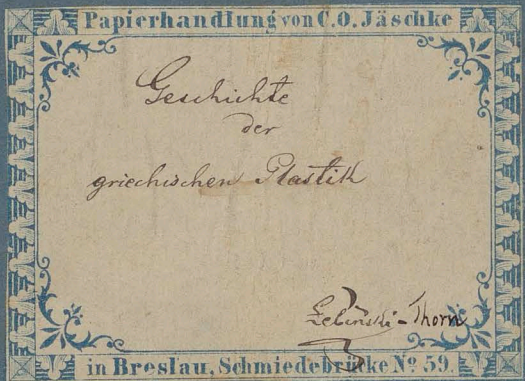 Papierhandlung von C. O. Jäschke
Geschichte
der
griechischen Plastik
Łebiński - Thorn
in Breslau, Schmiedebrücke No. 59.